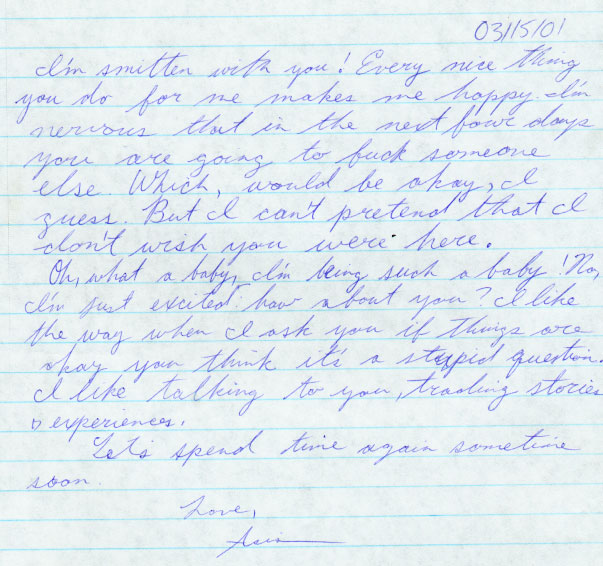 03/15/01
I'm smitten with you! Every nice thing
you do for me makes me happy. I'm
nervous that in the next four days
you are going to fuck someone
else. Which, would be okay, I
guess. But I can't pretend that I
don't wish you were here.
Oh, what a baby, I'm being such a baby! No,
I'm just excited: how about you? I like
the way when I ask you if things are
okay you think it's a stupid question.
I like talking to you, trading stories
experiences.
Let's spend time again sometime
soon.
Love,